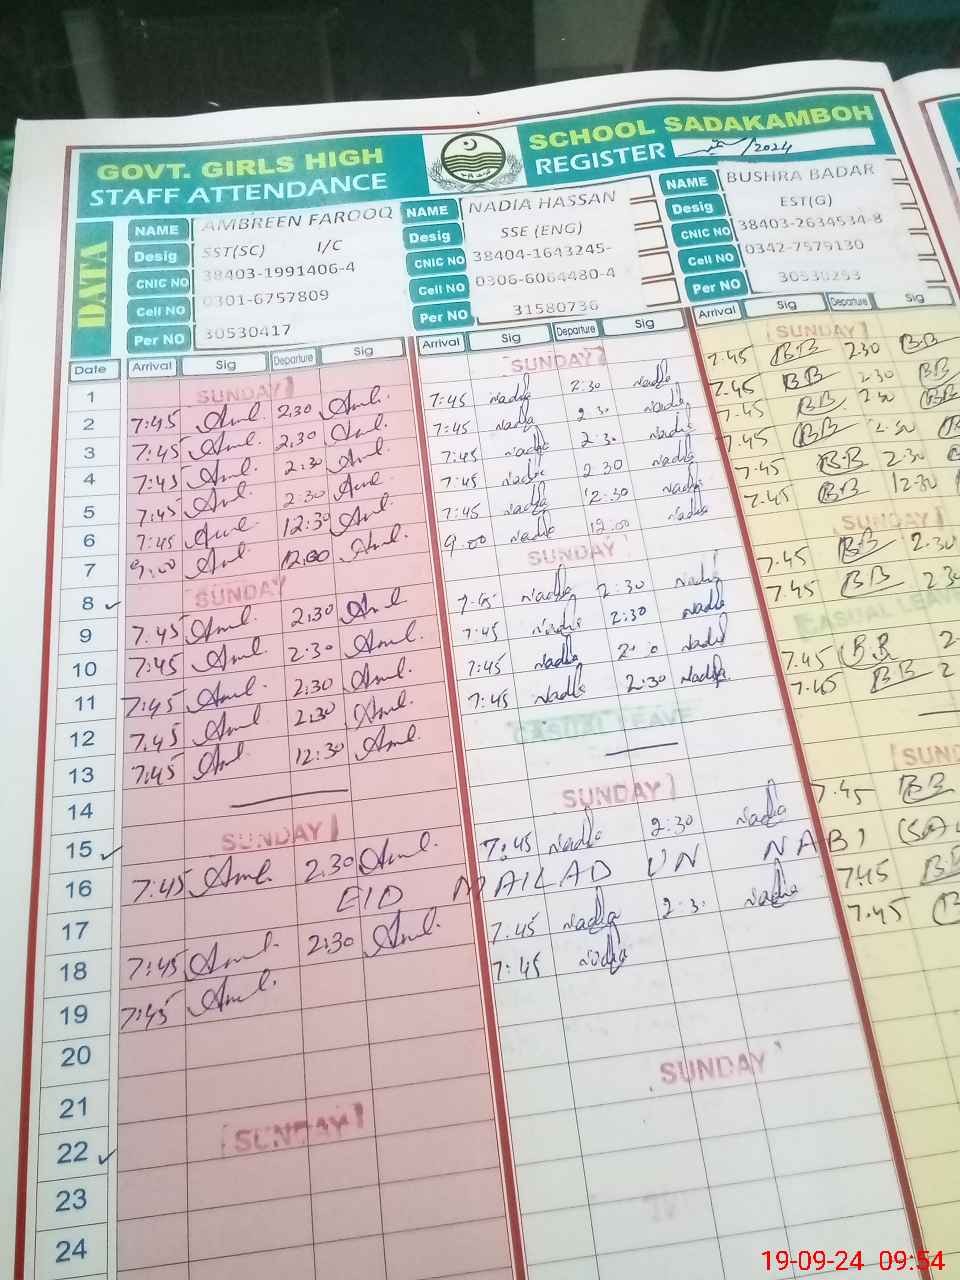 GOVT. GIRLS HIGH SCHOOL SADAKAMBOH
STAFF ATTENDANCE REGISTER ستمبر/2024
DATA
NAME AMBREEN FAROOQ NAME NADIA HASSAN NAME BUSHRA BADAR
Desig SST(SC) I/C Desig SSE (ENG) Desig EST(G)
CNIC NO 38403-1991406-4 CNIC NO 38404-1643245- CNIC NO 38403-2634534-8
Cell NO 0301-6757809 Cell NO 0306-6064480-4 Cell NO 0342-7579130
Per NO 30530417 Per NO 31580736 Per NO
Date Arrival Sig Departure Sig Arrival Sig Departure Sig Arrival Sig Departure Sig
1 SUNDAY SUNDAY SUNDAY
2 7:45 Aml. 2:30 Aml. 7:45 Nadia 2:30 Nadia 7.45 BB 2:30 BB
3 7:45 Aml. 2:30 Aml. 7:45 Nadia 2:30 Nadia 7.45 BB 2:30 BB
4 7:45 Aml. 2:30 Aml. 7:45 Nadia 2:30 Nadia 7.45 BB 2:30 BB
5 7:45 Aml. 2:30 Aml. 7:45 Nadia 2:30 Nadia 7.45 BB 2:30
6 7:45 Aml. 12:30 Aml. 7:45 Nadia 12:30 Nadia 7.45 BB 2:30
7 9:00 Aml 12:00 Aml. 9:00 Nadia 12:00 Nadia 7.45 BB 12:30
8 SUNDAY SUNDAY SUNDAY
9 7:45 Aml. 2:30 Aml 7:45 Nadia 2:30 Nadia 7.45 BB 2:30
10 7:45 Aml. 2:30 Aml. 7:45 Nadia 2:30 Nadia 7.45 BB 2:30
11 7:45 Aml. 2:30 Aml. 7:45 Nadia Nadia CASUAL LEAVE
12 7.45 Aml 2:30 Aml. 7:45 Nadia 2:30 Nadia 7.45 BB
13 7:45 Aml. 12:30 Aml. CASUAL LEAVE 7.45 BB
14
15 SUNDAY SUNDAY SUND
16 7:45 Aml. 2.30 Aml. 7:45 Nadia 2:30 Nadia 7.45 BB
17 EID MAILAD UN NABI (SA
18 7:45 Aml. 2:30 Aml. 7:45 Nadia Nadia 7.45
19 7:45 Aml. 7:45 Nadia 7.45
20
21
22 SUNDAY SUNDAY
23
24
19-09-24 09:54